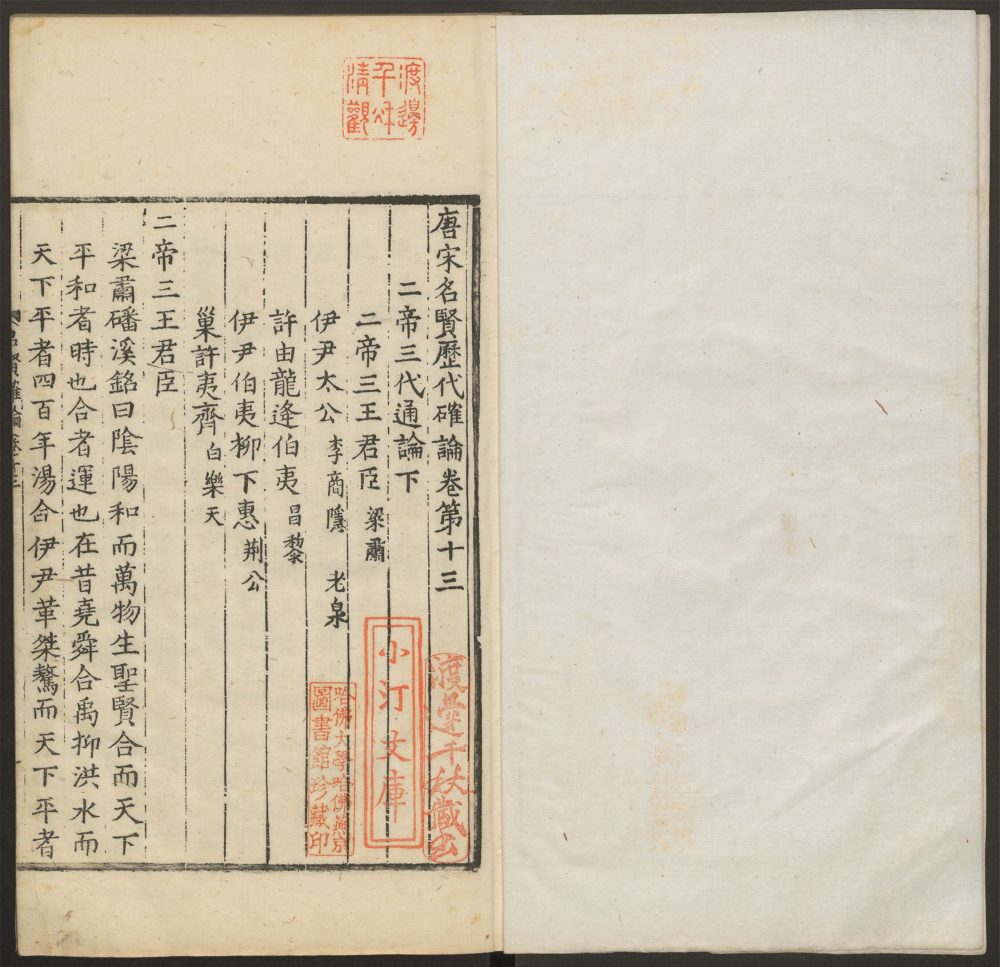 唐宋名賢歷代確論卷第十三
二帝三代通論下
二帝三王君臣 梁肅
伊尹太公 李商隱 老泉
許由龍逄伯夷 昌黎
伊尹伯夷柳下惠 荊公
巢許夷齊 白樂天
二帝三王君臣
梁肅磻溪銘曰陰陽和而萬物生聖賢合而天下
平和者時也合者運也在昔堯舜合禹抑洪水而
天下平者四百年湯合伊尹革桀驁而天下平者
渡邊
千秋
清觀
渡邊千秋藏書
小汀文庫
哈佛大學哈佛燕京
圖書館珍藏印